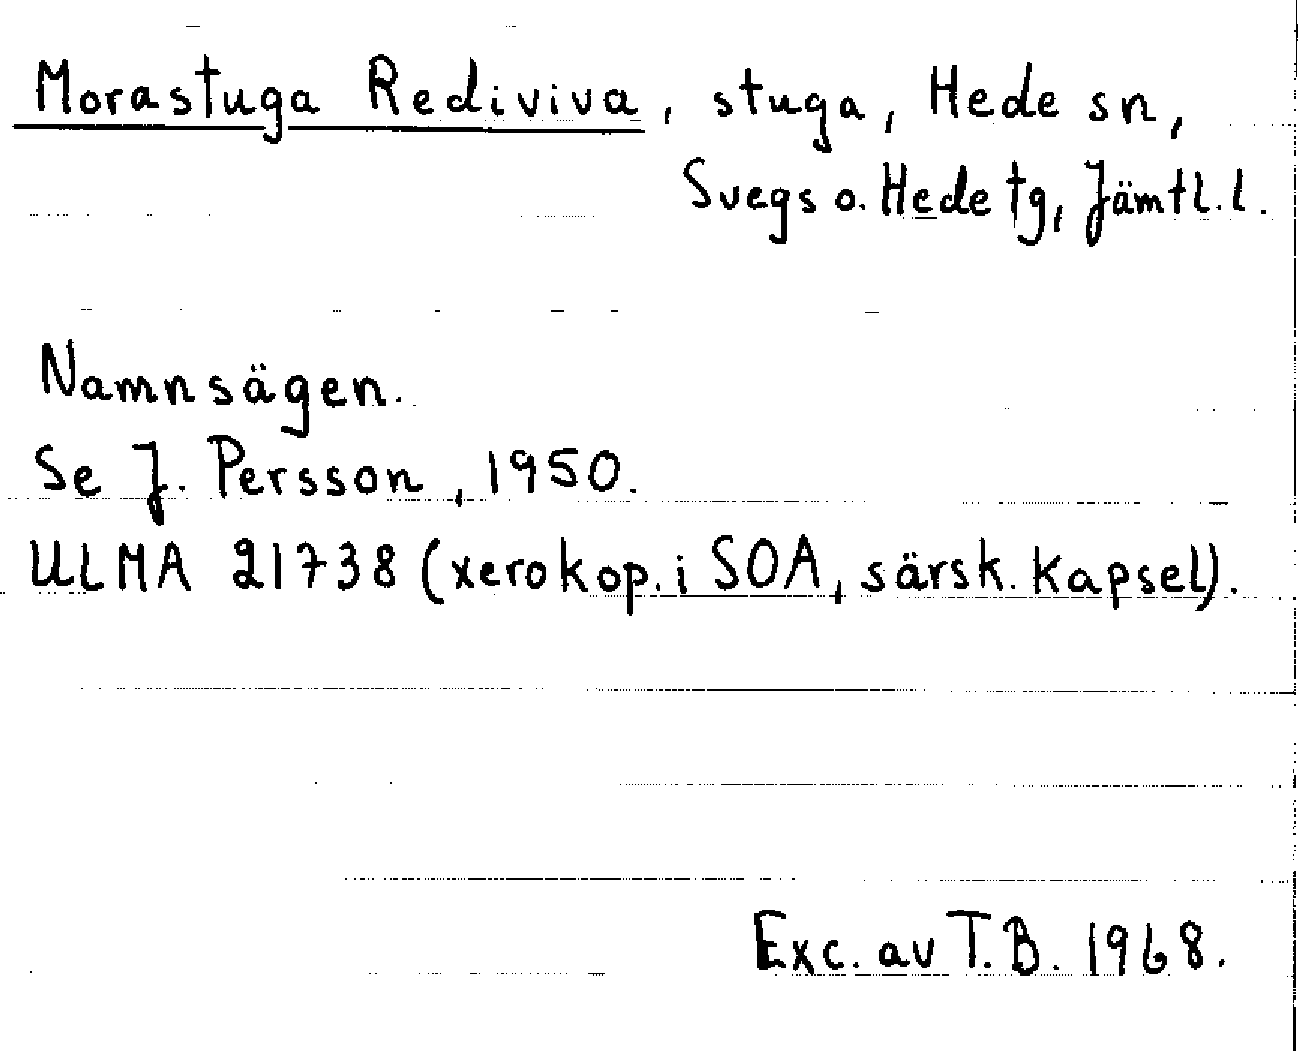 Morastuga Rediviva, stuga, Hede sn,
Svegs o. Hede tg, Jämtl. l.
Namnsägen.
Se J. Persson, 1950.
ULMA 21738 (xerokop. i SOA, särsk. kapsel).
Exc. av T.B. 1968.